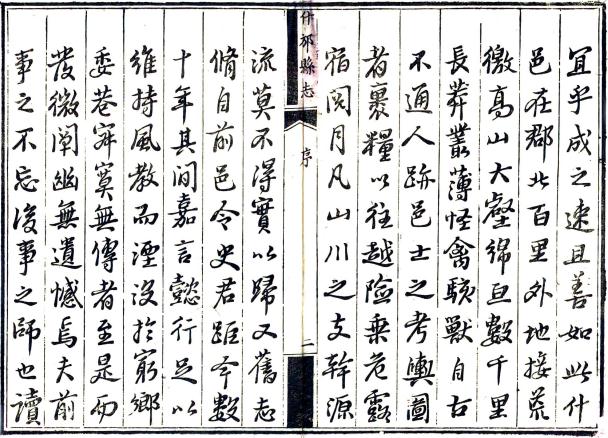 宜乎成之速且善如此什
邑在郡北百里外地接荒
徼高山大壑綿亘數千里
長莽叢薄怪禽駭獸自古
不通人跡邑士之考輿圖
者裹糧以往越險乘危露
宿閱月凡山川之支幹源
什邡縣志
序
二
流莫不得實以歸又舊志
脩自前邑令史君距今數
十年其間嘉言懿行足以
維持風教而湮沒於窮鄉
委巷寂寞無傳者至是而
發微闡幽無遺憾焉夫前
事之不忘後事之師也讀